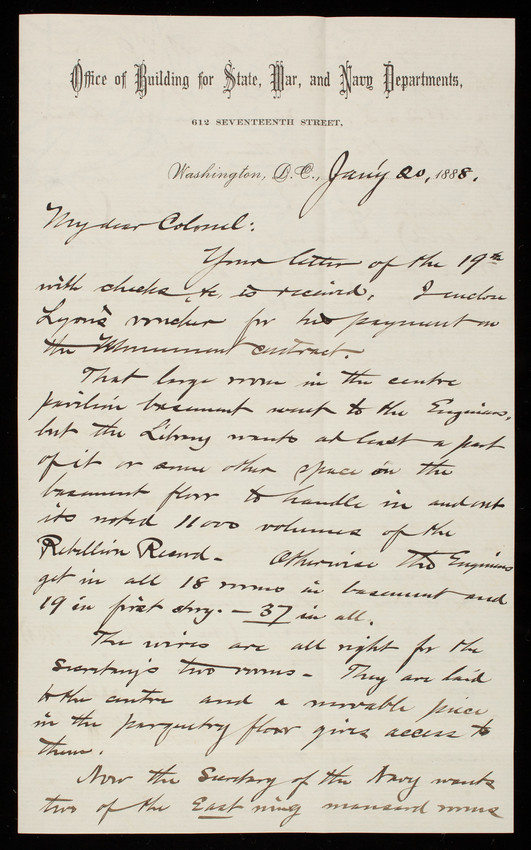 Office of Building for State, War, and Navy Departments,
612 SEVENTEENTH STREET.
Washington, D.C., Jan'y 20, 1888.
My dear Colonel:
Your letter of the 19th
with checks &c. is received. I enclose
Lyons voucher for his payment on
the Monument contract.
That large room in the centre
pavilion basement went to the Engineers,
but the Library wants at least a part
of it or some other space on the
basement floor to handle in and out
its noted 11000 volumes of the
Rebellion Record - Otherwise the Engineers
get in all 18 rooms in basement and
19 in first story. - 37 in all.
The wires are all right for the
Secretary's two rooms - They are laid
to the centre and a movable piece
in the parquetry floor gives access to
them.
Now the Secretary of the Navy wants
two of the East wing mansard rooms